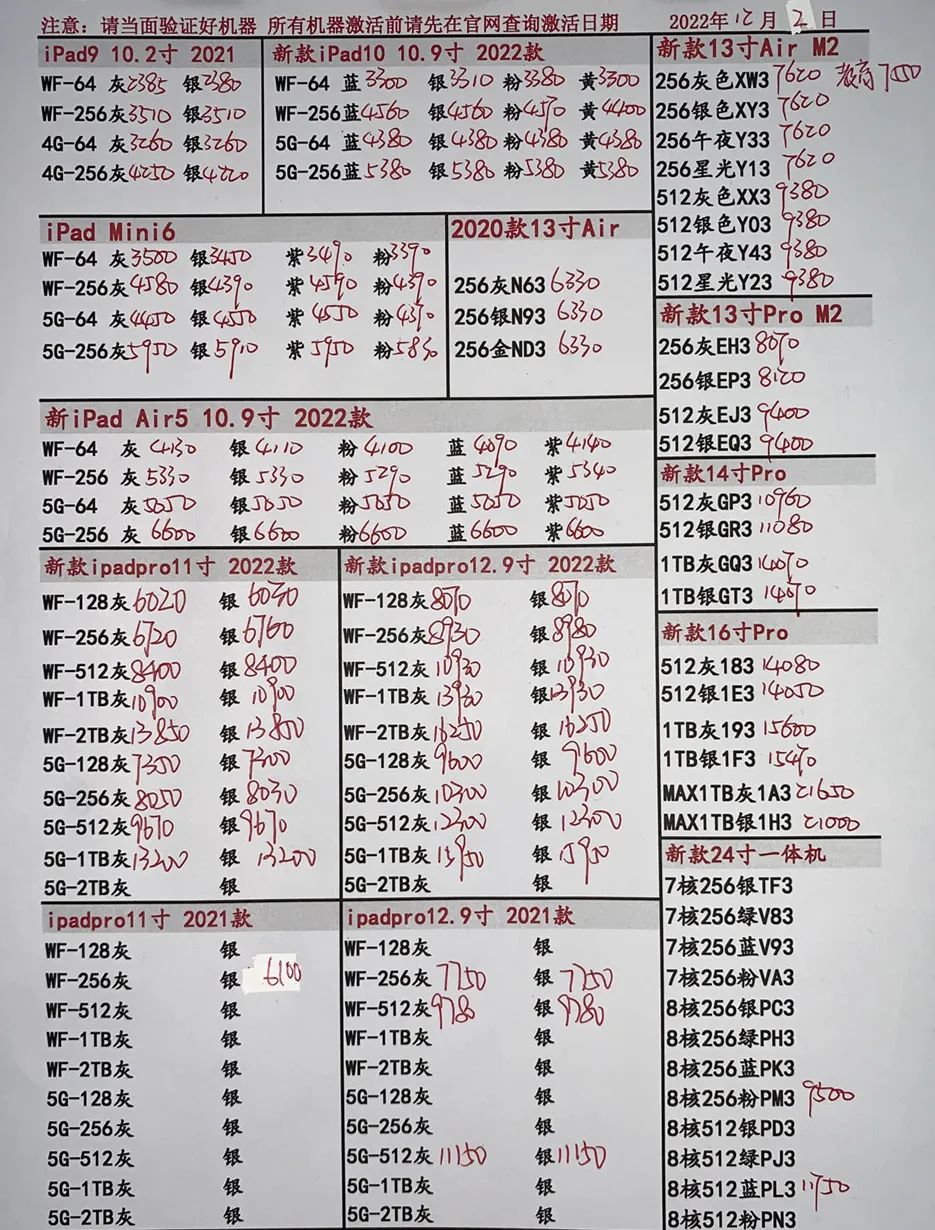 注意：请当面验证好机器 所有机器激活前请先在官网查询激活日期
2022年12月2日
iPad9 10.2寸 2021
WF-64 灰2385 银2380
WF-256灰3510 银3510
4G-64 灰3260 银3260
4G-256灰4250 银4220
新款iPad10 10.9寸 2022款
WF-64 蓝3300 银3310 粉3380 黄3300
WF-256蓝4560 银4560 粉4570 黄4400
5G-64 蓝4380 银4380 粉4380 黄4380
5G-256蓝5380 银5380 粉5380 黄5380
iPad Mini6
WF-64 灰3500 银3450 紫3490 粉3390
WF-256灰4580 银4390 紫4590 粉4390
5G-64 灰4450 银4550 紫4550 粉4390
5G-256灰5950 银5910 紫5950 粉5830
2020款13寸Air
256灰N63 6330
256银N93 6330
256金ND3 6330
新iPad Air5 10.9寸 2022款
WF-64 灰4130 银4110 粉4100 蓝4090 紫4140
WF-256 灰5330 银5330 粉5290 蓝5290 紫5340
5G-64 灰5050 银5050 粉5050 蓝5050 紫5050
5G-256 灰6600 银6600 粉6600 蓝6600 紫6600
新款ipadpro11寸 2022款
WF-128灰6020 银6030
WF-256灰6720 银6760
WF-512灰8400 银8400
WF-1TB灰10900 银10900
WF-2TB灰13850 银13850
5G-128灰7350 银7300
5G-256灰8050 银8030
5G-512灰9670 银9670
5G-1TB灰13200 银13200
5G-2TB灰 银
新款ipadpro12.9寸 2022款
WF-128灰8070 银8070
WF-256灰8930 银8980
WF-512灰10930 银10930
WF-1TB灰13930 银13930
WF-2TB灰16250 银16250
5G-128灰9600 银9600
5G-256灰10300 银10300
5G-512灰12300 银12300
5G-1TB灰15950 银15950
5G-2TB灰 银
ipadpro11寸 2021款
WF-128灰 银
WF-256灰 银 6100
WF-512灰 银
WF-1TB灰 银
WF-2TB灰 银
5G-128灰 银
5G-256灰 银
5G-512灰 银
5G-1TB灰 银
5G-2TB灰 银
ipadpro12.9寸 2021款
WF-128灰 银
WF-256灰 7750 银 7750
WF-512灰9780 银 9780
WF-1TB灰 银
WF-2TB灰 银
5G-128灰 银
5G-256灰 银
5G-512灰11150 银11150
5G-1TB灰 银
5G-2TB灰 银
新款13寸Air M2
256灰色XW3 7620 教育
256银色XY3 7620
256午夜Y33 7620
256星光Y13 7620
512灰色XX3 9380
512银色Y03 9380
512午夜Y43 9380
512星光Y23 9380
新款13寸Pro M2
256灰EH3 8070
256银EP3 8120
512灰EJ3 9400
512银EQ3 9400
新款14寸Pro
512灰GP3 10960
512银GR3 11080
1TB灰GQ3 14070
1TB银GT3 14070
新款16寸Pro
512灰183 14080
512银1E3 14050
1TB灰193 15600
1TB银1F3 15470
MAX1TB灰1A3 21650
MAX1TB银1H3 21000
新款24寸一体机
7核256银TF3
7核256绿V83
7核256蓝V93
7核256粉VA3
8核256银PC3
8核256绿PH3
8核256蓝PK3
8核256粉PM3 9500
8核512银PD3
8核512绿PJ3
8核512蓝PL3 11750
8核512粉PN3